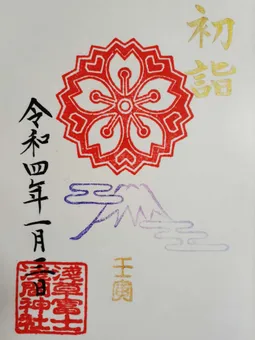 初詣
令和四年一月三日
壬寅
淺草富士
浅間神社